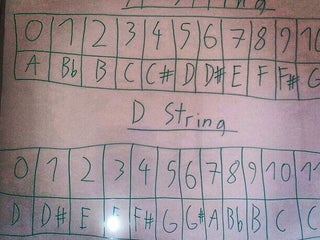 String
0 1 2 3 4 5 6 7 8 9
A Bb B C C# D D# E F F# G
D String
0 1 2 3 4 5 6 7 8 9 10
D D# E F F# G G# A Bb B C